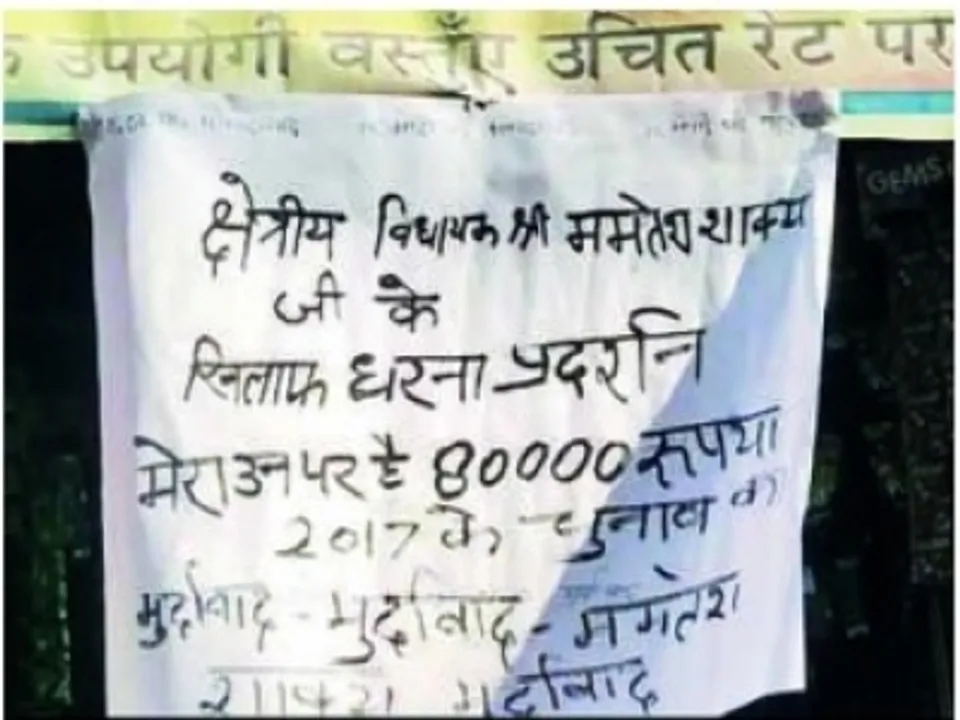 उपयोगी वस्तुएँ उचित रेट पर
GEMS
क्षेत्रीय विधायक श्री ममतेश शाक्य
जी के
खिलाफ धरना प्रदर्शन
मेरा उन पर है 80000 रूपया
2017 के चुनाव का
मुर्दाबाद - मुर्दाबाद - ममतेश
शाक्य मुर्दाबाद